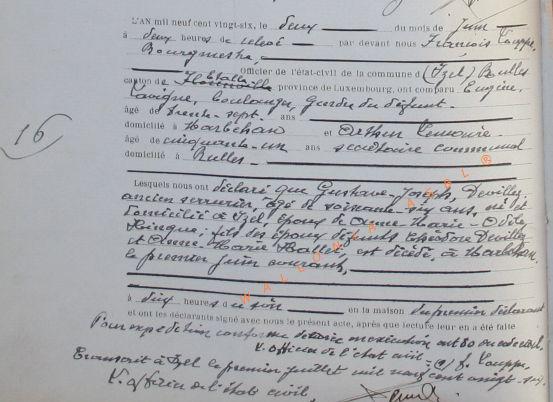 L'AN mil neuf cent vingt-six, le deux du mois de Juin
à deux heures de relevé par devant nous François
Bourgmestre,
Officier de l'état-civil de la commune d (Izel) Rulles
canton de Etalle province de Luxembourg, ont comparu Eugène,
Lavigne, boulanger, gendre du défunt.
âgé de trente-sept ans
domicilié à Harbchan et Arthur Lemaire
âgé de cinquante-un ans secrétaire communal
domicilié à Rulles
16
Lesquels nous ont déclaré que Gustave-Joseph, Devillez,
ancien serrurier, âgé de soixante-six ans, né et
domicilié à Izel époux de Anne Marie-Odile
fils des époux défunts Théodore Devillez
et Anne-Marie Hallet, est décédé, à Harbchan,
le premier Juin courant,
WALLONIA ASBL ®
à dix heures du soir en la maison du premier déclarant
et ont les déclarants signé avec nous le présent acte, après que lecture leur en a été faite
Pour expédition conforme
L'officier de l'état civil,
Transcrit à Izel le premier Juillet mil neuf cent vingt-six
L'officier de l'état civil,